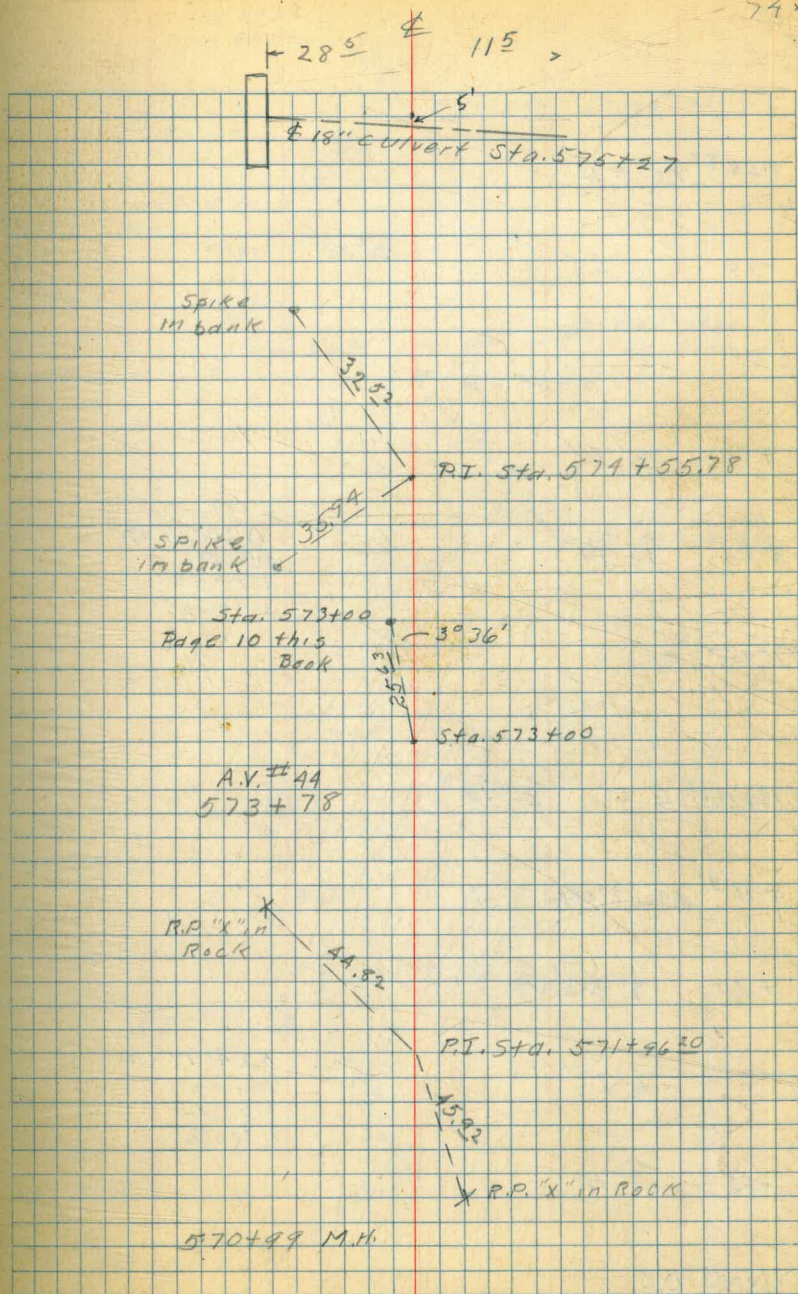 74
℄
28 5 11 5
5'
℄ 18" Culvert Sta. 575+27
Spike
in bank
32 52
P.I. Sta. 574 + 55.78
35.94
Spike
in bank
Sta. 573+00
Page 10 this
Book
3° 36'
25 63
Sta. 573+00
A.V. # 44
573 + 78
R.P. "X" in
Rock
44.82
P.I. Sta. 571+96 20
45.92
R.P. "X" in Rock
570+99 M.H.